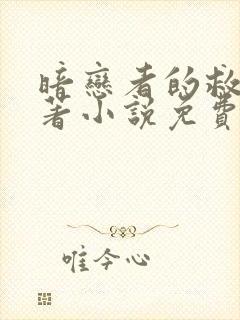 暗戀者的救
著小說免費
唯今心